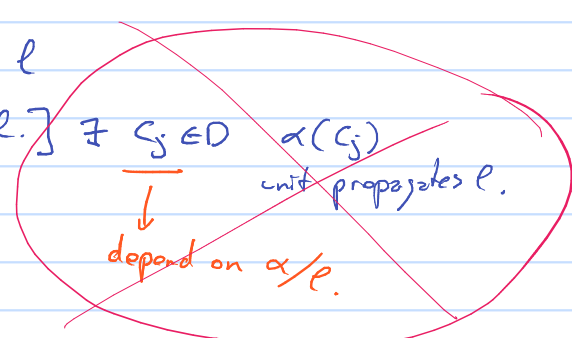 ℓ
ℓ.] ∃ Cj ∈ D α(Cj)
unit propagates ℓ.
depend on α/ℓ.